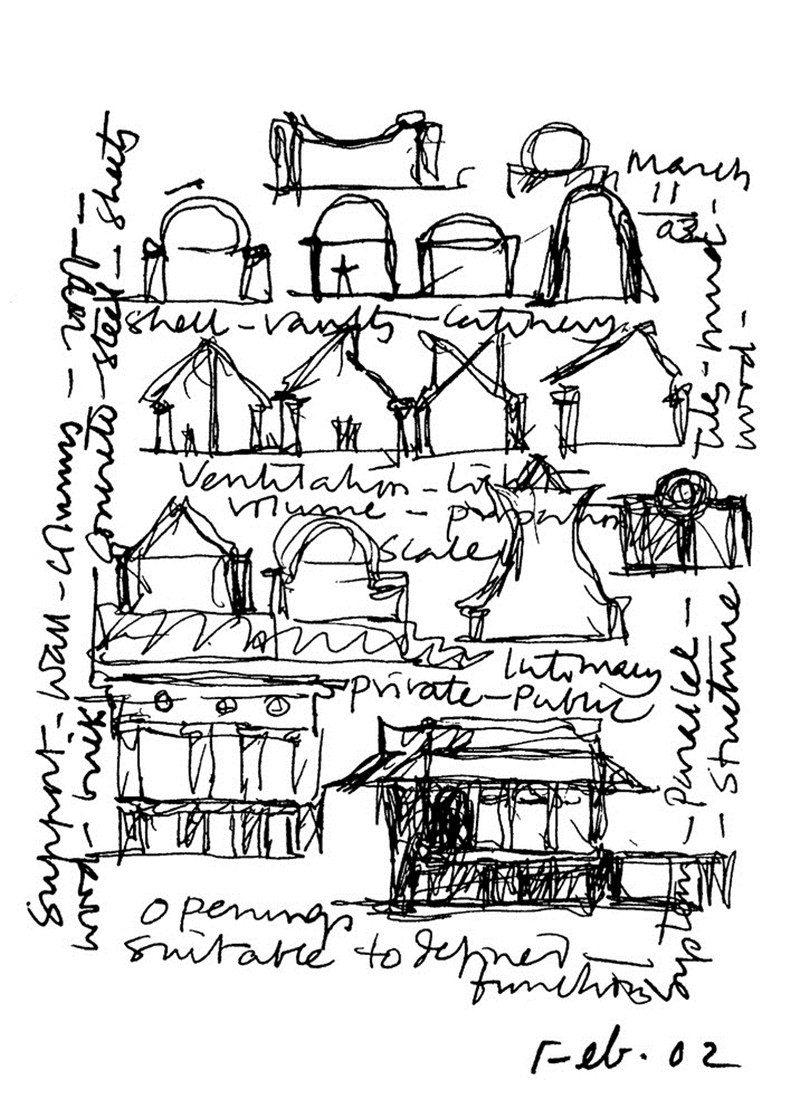 March
11
02
shell - vaults - catinary
Ventilation - light
volume - proportion
scale
Intimacy
private - Public
Openings
suitable to defined
functions
Feb. 02
Support - wall - columns -
wood - brick concrete - steel - sheets
Tiles - mud -
wood -
System - Parallel -
- Structure